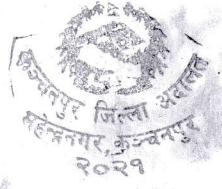 कञ्चनपुर जिल्ला अदालत
महेन्द्रनगर, कञ्चनपुर
२०२१